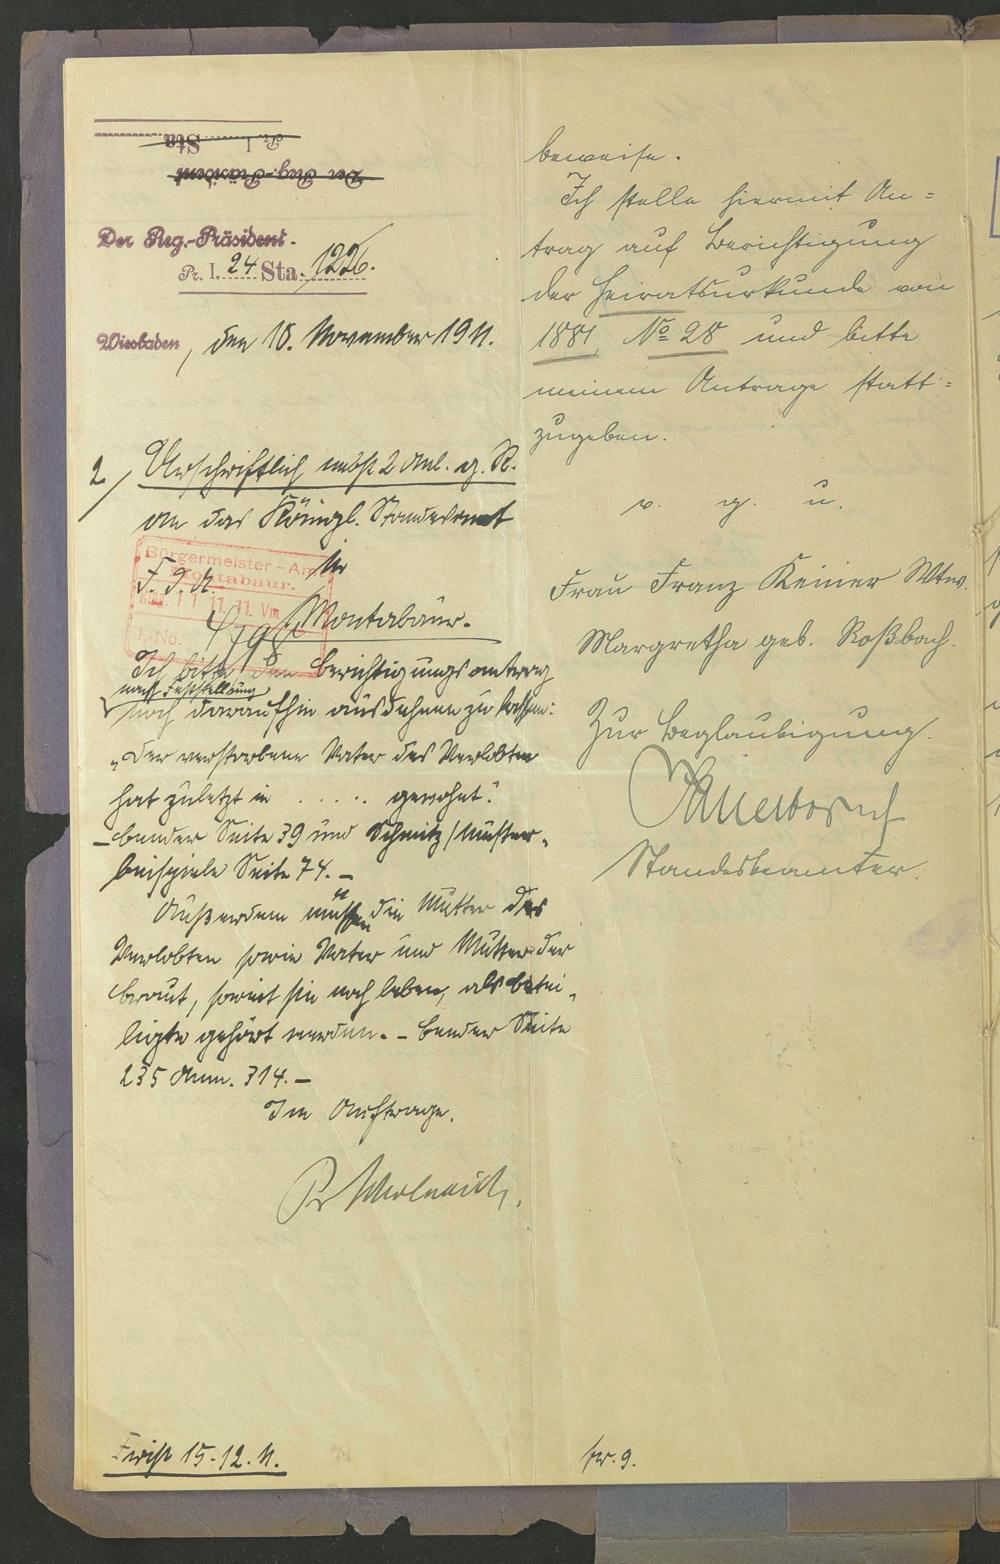 Der Reg.-Präsident
Pr. I. Sta
Der Reg.-Präsident.
Pr. I. 24 Sta. 1226.
Wiesbaden, den 10. November 1911.
2/ Urschriftlich nebst 2 Anl. g. R.
an das Königl. Standesamt
Bürgermeister-Amt
Montabaur.
11. 11. 11. Vm
J.-No.
Montabaur.
Ich bitte den Berichtigungsantrag
nach Feststellung
noch daraufhin ausdehnen zu lassen:
„Der verstorbene Vater des Verlobten
hat zuletzt in ..... gewohnt."
– Bender Seite 39 und Schmitz/Muster-
beispiele Seite 74. –
Außerdem müssen die Mutter des
Verlobten sowie Vater und Mutter der
Braut, soweit sie noch leben, als betei-
ligte gehört werden. – Bender Seite
235 Anm. 314. –
Im Auftrage.
Frist 15.12.11.
beweise.
Ich stelle hiermit An=
trag auf Berichtigung
der Heiratsurkunde von
1881 No 28 und bitte
meinem Antrage statt=
zugeben.
v. g. u.
Frau Franz Keiner Wtw.
Margretha geb. Roßbach.
Zur Beglaubigung.
Standesbeamter.